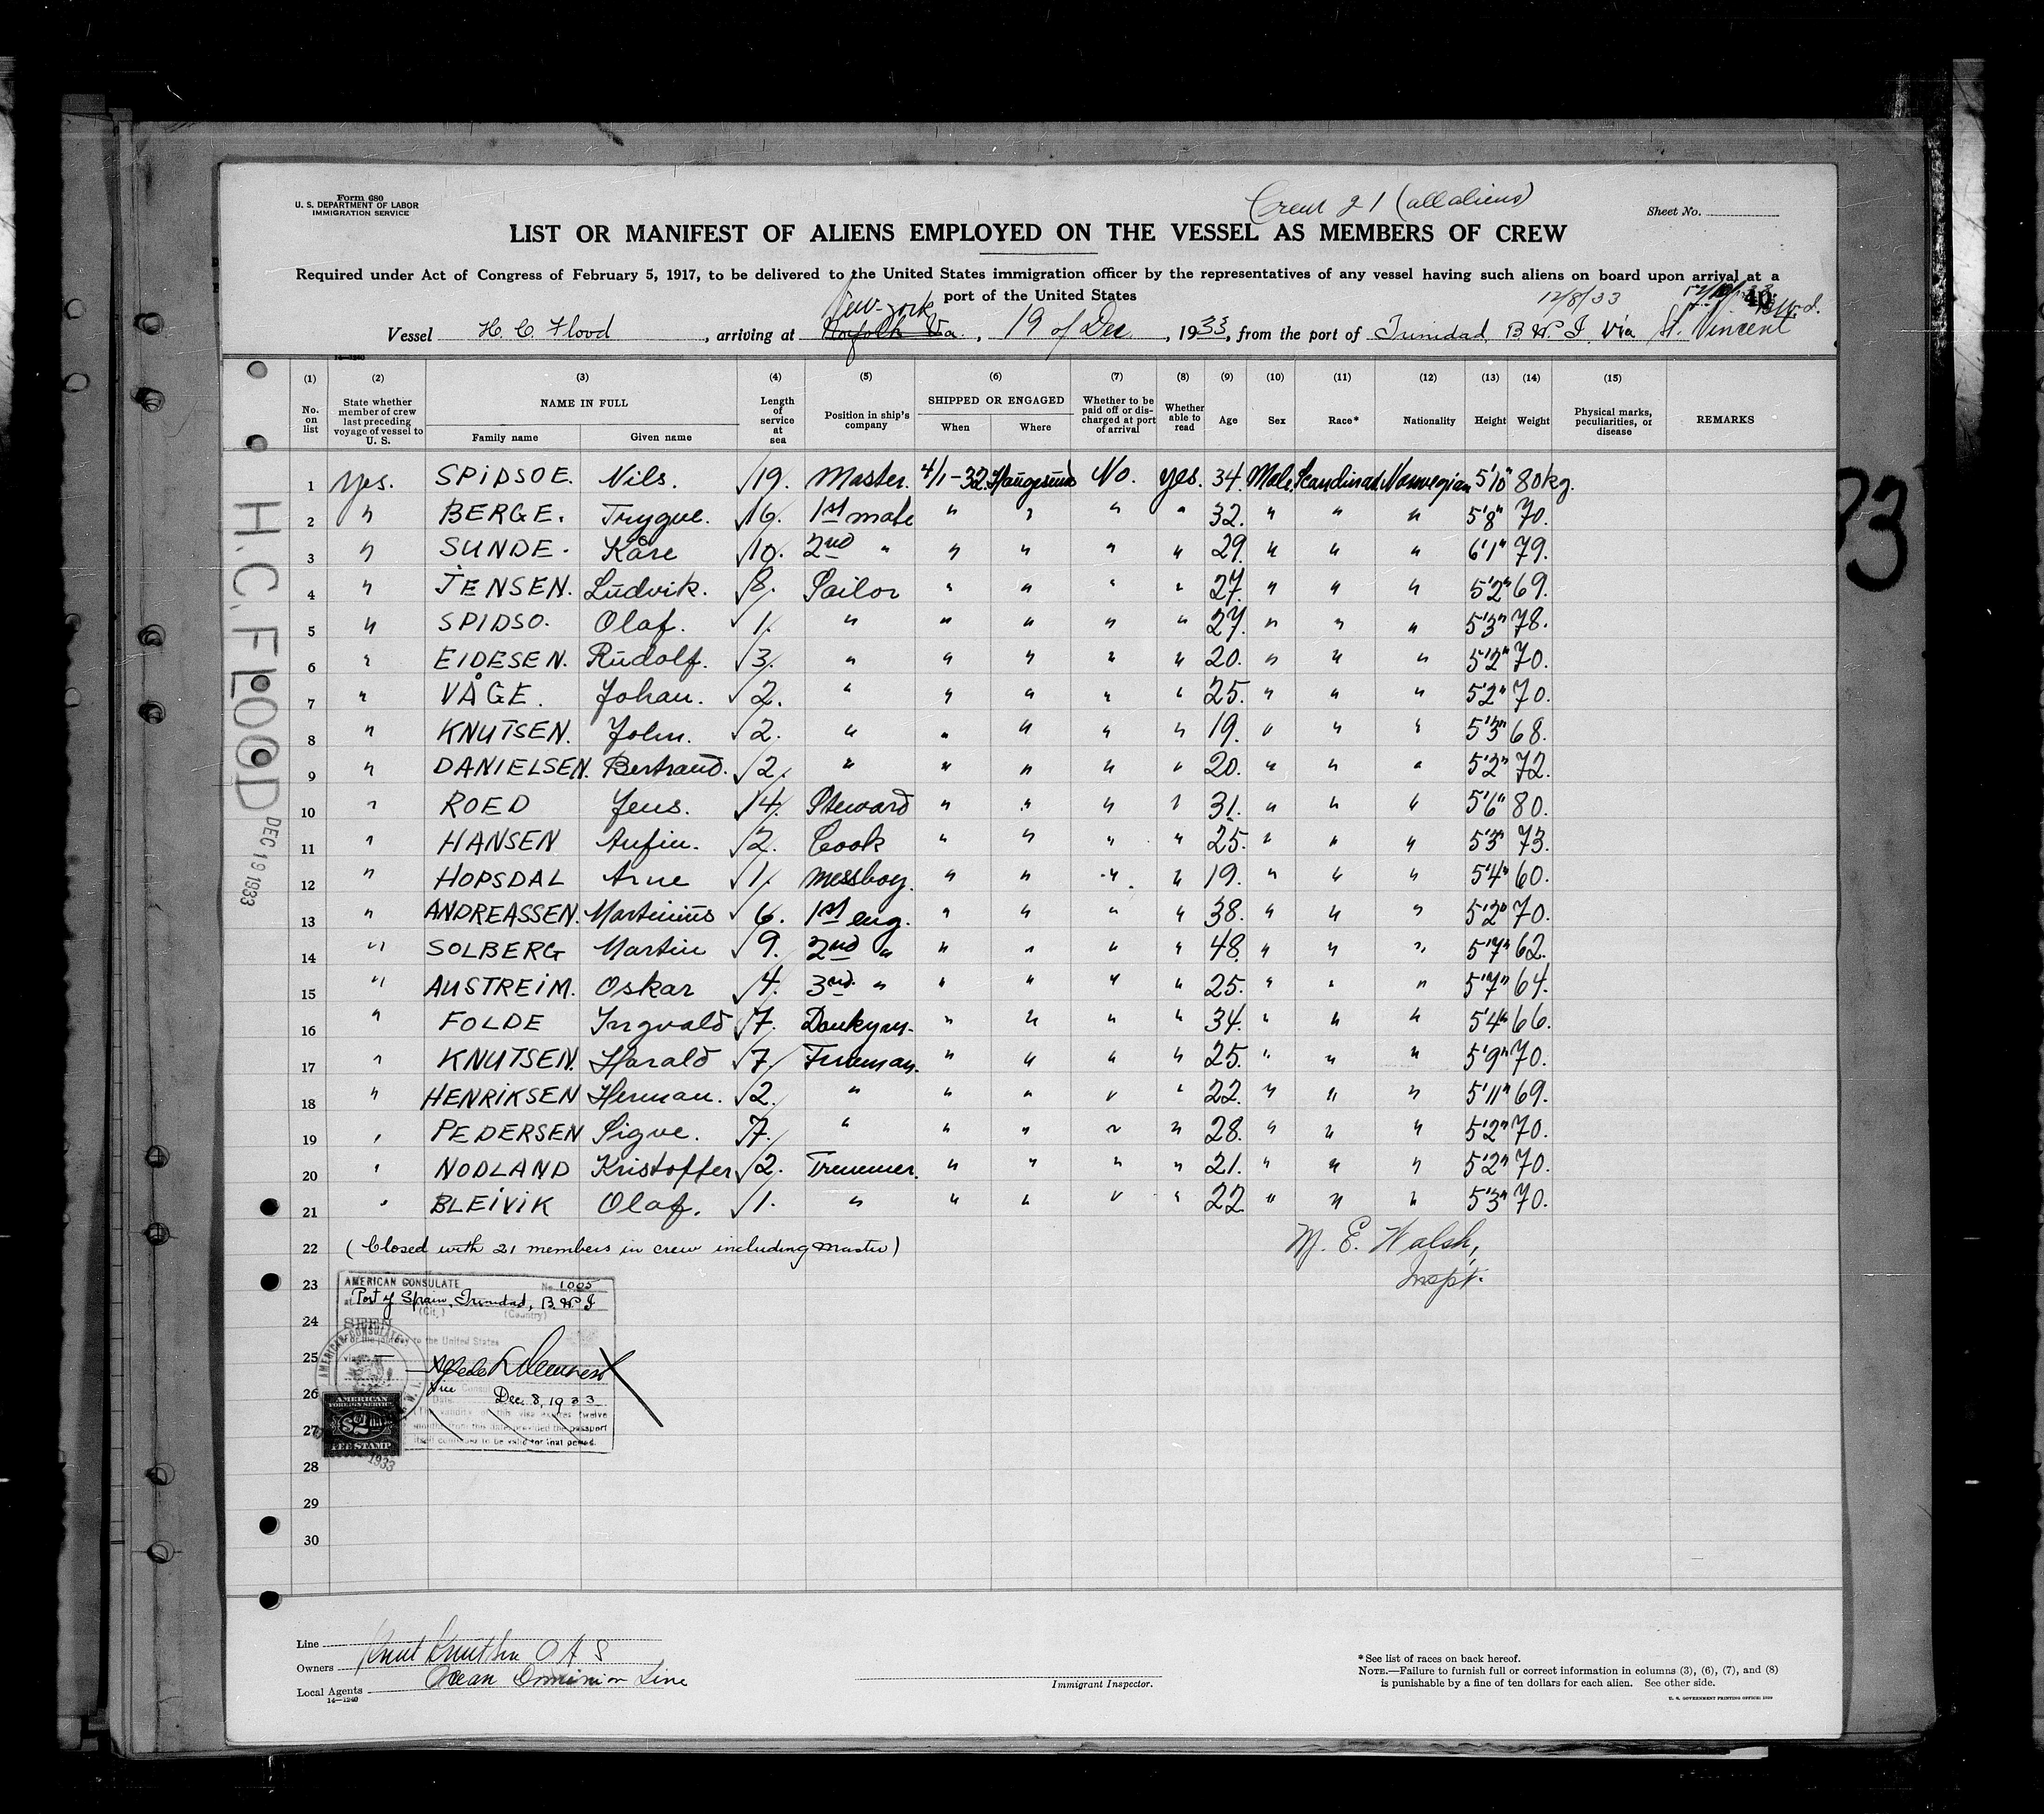 Form 680
U. S. DEPARTMENT OF LABOR
IMMIGRATION SERVICE
Crew 21 (all aliens)
Sheet No.
LIST OR MANIFEST OF ALIENS EMPLOYED ON THE VESSEL AS MEMBERS OF CREW
Required under Act of Congress of February 5, 1917, to be delivered to the United States immigration officer by the representatives of any vessel having such aliens on board upon arrival at a
port of the United States
New-York 12/8/33 40
Vessel H. C. Flood, arriving at Norfolk Va., 19 of Dec., 1933, from the port of Trinidad B.W.I. via St. Vincent
14-1240
(1) (2) (3) (4) (5) (6) (7) (8) (9) (10) (11) (12) (13) (14) (15)
No. on list State whether member of crew last preceding voyage of vessel to U. S. NAME IN FULL Family name Given name Length of service at sea Position in ship's company SHIPPED OR ENGAGED When Where Whether to be paid off or discharged at port of arrival Whether able to read Age Sex Race* Nationality Height Weight Physical marks, peculiarities, or disease REMARKS
1 Yes. SPIDSOE. Nils. √19. Master. 4/1-32. Haugesund No. yes. 34. Male. Scandinav. Norwegian 5'10" 80kg.
2 " BERGE. Trygve. √16. 1st mate " " " " 32. " " " 5'8" 70.
3 " SUNDE. Kåre √10. 2nd " " " " " 29. " " " 6'1" 79.
4 " JENSEN. Ludvik. √8. Sailor " " " " 27. " " " 5'2" 69.
5 " SPIDSO. Olaf. √1. " " " " " 27. " " " 5'3" 78.
6 " EIDESEN. Rudolf. √3. " " " " " 20. " " " 5'2" 70.
7 " VÅGE. Johan. √2. " " " " " 25. " " " 5'2" 70.
8 " KNUTSEN. John. √2. " " " " " 19. " " " 5'3" 68.
9 " DANIELSEN. Bertrand. √2. " " " " " 20. " " " 5'2" 72.
10 " ROED Jens. √14. Steward " " " " 31. " " " 5'6" 80.
11 " HANSEN Anfin. √2. Cook " " " " 25. " " " 5'3" 73.
12 " HOPSDAL Arne √1. Messboy. " " " " 19. " " " 5'4" 60.
13 " ANDREASSEN. Martinius √6. 1st eng. " " " " 38. " " " 5'2" 70.
14 " SOLBERG Martin √9. 2nd " " " " " 48. " " " 5'7" 62.
15 " AUSTREIM. Oskar √4. 3rd. " " " " " 25. " " " 5'7" 64.
16 " FOLDE Ingvald √7. Donkym. " " " " 34. " " " 5'4" 66.
17 " KNUTSEN. Harald √7. Fireman. " " " " 25. " " " 5'9" 70.
18 " HENRIKSEN Herman. √2. " " " " " 22. " " " 5'11" 69.
19 " PEDERSEN Sigve. √7. " " " " " 28. " " " 5'2" 70.
20 " NODLAND Kristoffer √2. Tremmer. " " " " 21. " " " 5'2" 70.
21 " BLEIVIK Olaf. √1. " " " " " 22 " " " 5'3" 70.
22 (Closed with 21 members in crew including Master)
M. E. Walsh,
Inspt.
23
24
25
26
27
28
29
30
AMERICAN CONSULATE No. 1005
at Port of Spain, Trinidad, B.W.I
(City) (Country)
SEEN
For the journey to the United States
via
Vice Consul
Date Dec. 8, 1933
(The validity of this visa expires twelve
months from this date provided the passport
itself continues to be valid for that period.
AMERICAN
FOREIGN SERVICE
$2
FEE STAMP
1933
H.C. FLOOD
DEC 19 1933
33
Line
Owners Knut Knutsen O A S
Local Agents Ocean Dominion Line
14-1240
Immigrant Inspector.
*See list of races on back hereof.
NOTE.—Failure to furnish full or correct information in columns (3), (6), (7), and (8)
is punishable by a fine of ten dollars for each alien. See other side.
U. S. GOVERNMENT PRINTING OFFICE: 1929